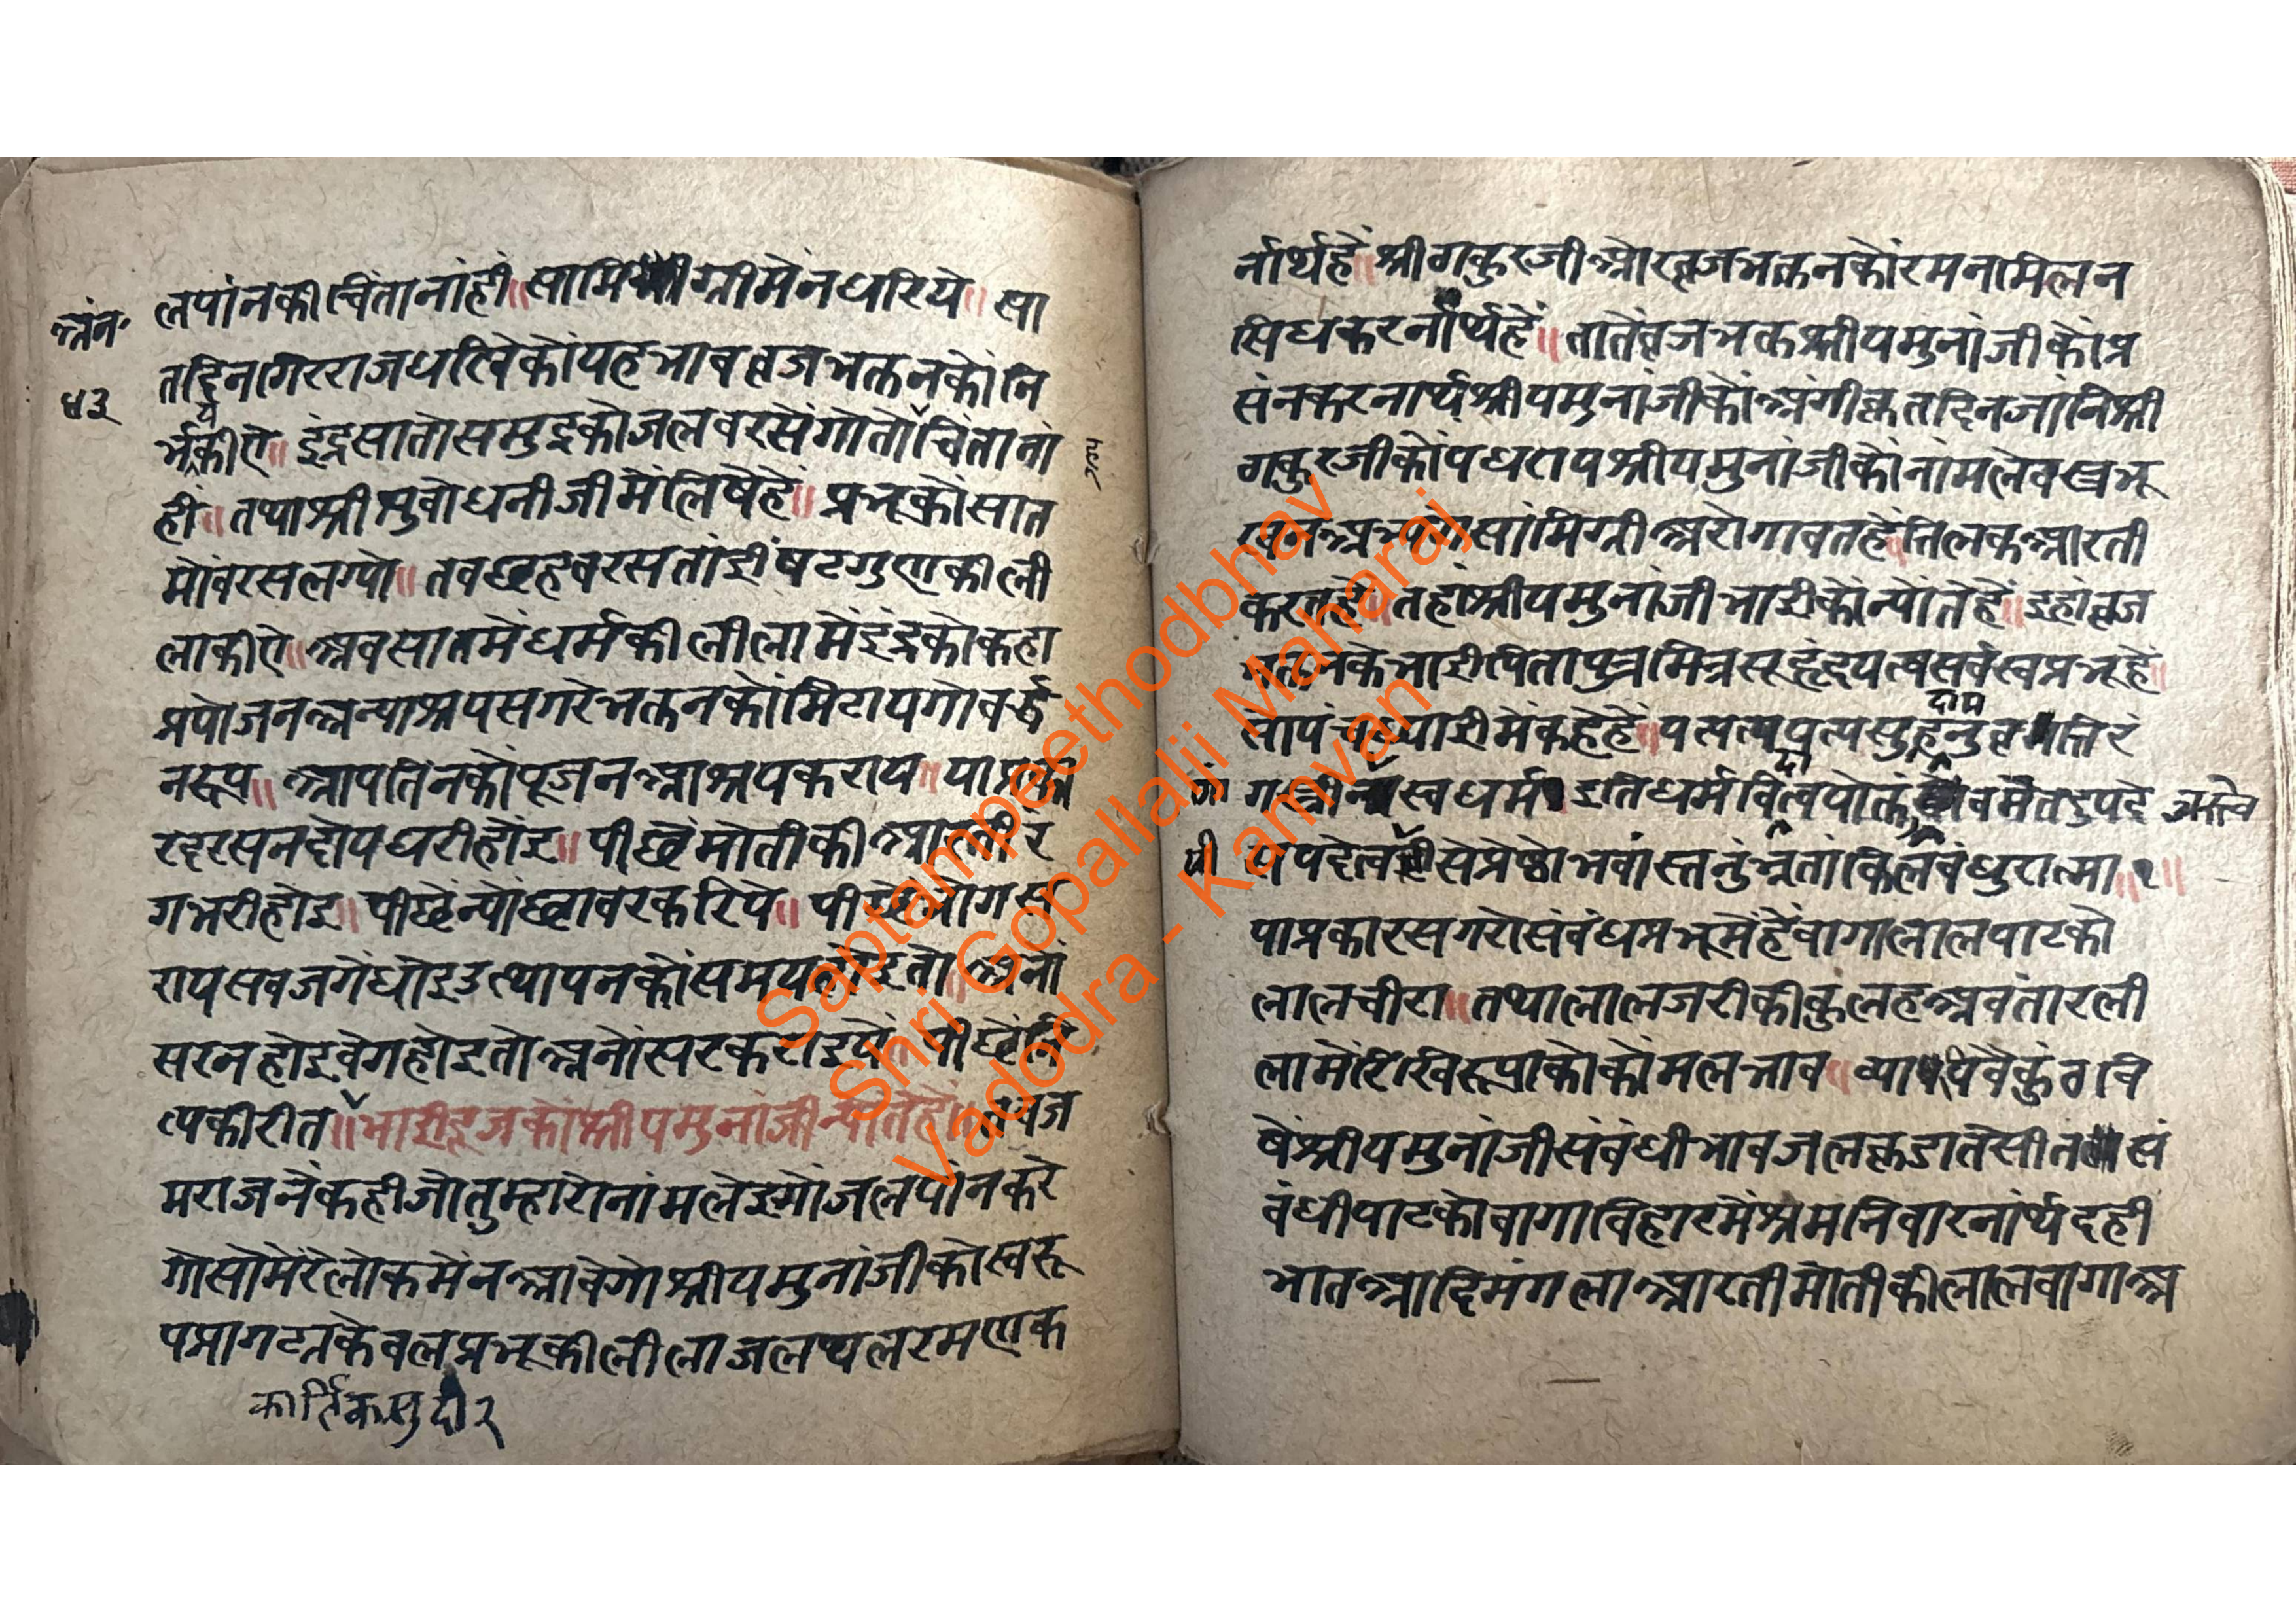 लपांनकी चिंता नांही॥ सामिग्रीमेन धरिये॥ सा
अंन॰
४३
तद्दिन गिरराज धरिवेको यह भाव ब्रजभक्तनकों नि
र्भयकीऐ॥ इंद्र सातो समुद्रको जल वरसेंगो तो चिंता नां
हीं॥ तथा श्रीसुबोधनीजी में लिषेहे॥ प्रभूकों सात
मों वरस लग्यो॥ तब छह वरस तांई षटगुएकी ली
ला कीऐ॥ अब सातमें धर्मकी लीला में इंद्रको कहा
प्रयोजन अन्याश्रय सगरे भक्तनकों मिटाय गोवर्द्ध
नरूप॥ आपतिनको पूजन आश्रय कराय॥ या
रदरसन होय धरी होइ॥ पीछें मोतीकी
ग भरी होइ॥ पीछें न्योंछावर करिये॥ पीछें भोग स
राय सब जगे धोइ उत्थापनको समय होइ तो
सर न होइ वेग होइ तो अनोसर कराइये॥ पीछें नि
त्यकी रीत॥ भाईदूजकों श्रीयमुनांजी न्योतेहें॥ तब ज
मराजनें कही जो तुम्हारो नांम लेइगो जलपांन करे
गो सो मेरे लोकमें न आवेगो श्रीयमुनांजीको स्वरू
प प्रागट्य केवल प्रभूकी लीला जलथल रमएक
कार्तिक सुदी २
र्नार्थहें॥ श्रीठाकुरजी ओर ब्रजभक्तनकों रमना मिलन
सिध करनार्थहें॥ तातें ब्रजभक्त श्रीयमुनांजीकों प्र
संन करनार्थ श्रीयमुनांजीकों अंगीकृत दिन जांनि श्री
ठाकुरजीकों पधराय श्रीयमुनांजीकों नांम ले वस्त्र भू
सामिग्री अरोगावतहें॥ तिलक आरती
करतहें॥ तहां श्रीयमुनांजी भाईकों न्योतेहें॥ इहां ब्रज
भक्तनके भाई पिता पुत्र मित्र सूहृद पत्य सर्वस्व प्रभू हे॥
सो पंचाध्याई में कहेहें॥ यत्पत्यपत्य सुहृदामनुवृत्तिरं
ग स्त्रीनां स्वधर्म इति धर्मविदा त्वयोक्तं मेतदुपदे
अस्त्वेव
पी
शपदे त्वयीसे प्रेष्ठो भवांस्तनुभृतां किल बंधुरात्मा॥१॥
या प्रकार सगरो संबंध प्रभूमेंहें वागा लाल पाटको
लाल चीरा॥ तथा लाल जरीकी कुलह अवतारली
लामें रिखिरूपाको कोमल भाव॥ व्यापि वैकुंठ वि
षें श्रीयमुनांजी संबंधी भाव जलक्रीडा तें सीत सं
बंधी पाटको वागा विहारमें श्रम निवारनार्थ दही
भात आदि मंगला आरती मोतीकी लाल वागा अ
Saptampeethodbhav
Shri Gopallalji Maharaj
Vadodra - Kamvan